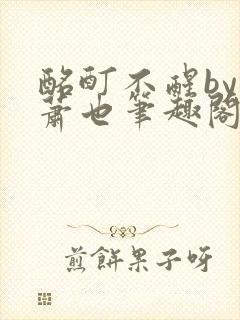 酩酊不醒by
萧也笔趣阁
煎饼果子呀